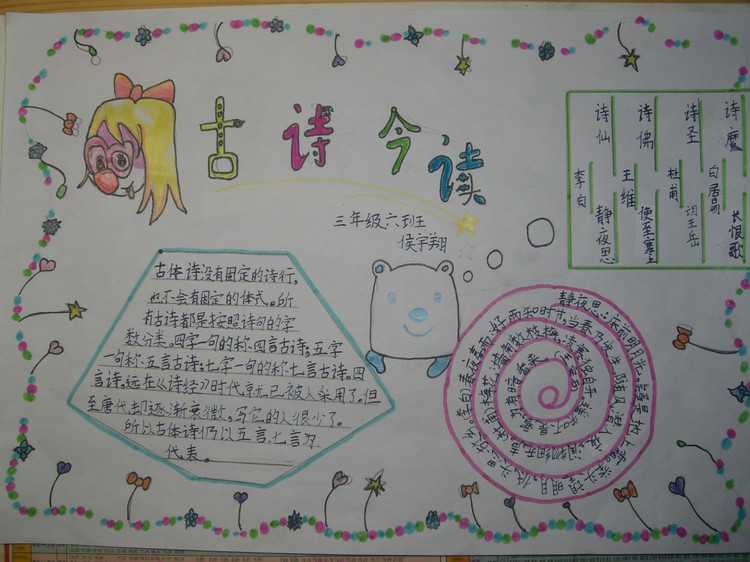 古诗今读
三年级六班
侯宇翔
诗魔 白居易 长恨歌
诗圣 杜甫 望岳
诗佛 王维 使至塞上
诗仙 李白 静夜思
古体诗没有固定的诗行,
也不会有固定的体式。所
有古诗都是按照诗句的字
数分类。四字一句的称四言古诗;五字
一句称五言古诗;七字一句的称七言古诗。四
言诗,远在《诗经》时代就已被人采用了。但
至唐代,却逐渐衰微,写它的人很少了。
所以古体诗仍以五言、七言为
代表。
静夜思:床前明月光,疑是地上霜。举头望明月,低头思故乡。(李白)春夜喜雨:好雨知时节,当春乃发生。随风潜入夜,润物细无声。(杜甫)梅花:墙角数枝梅,凌寒独自开。遥知不是雪,为有暗香来。(王安石)